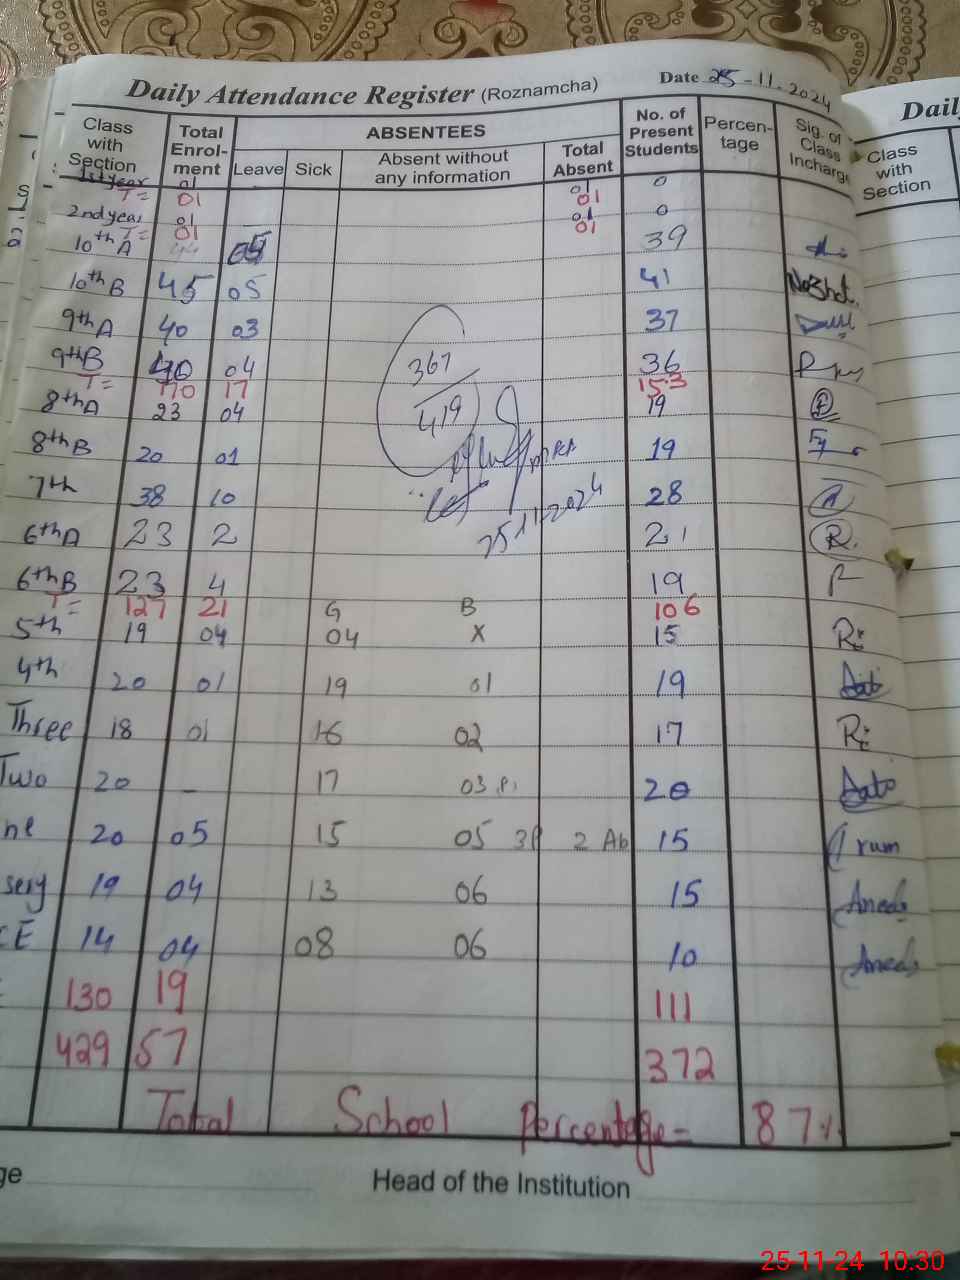 Daily Attendance Register (Roznamcha) Date 25-11-2024
Class with Section
Total Enrol-ment
ABSENTEES
Leave Sick Absent without any information Total Absent
No. of Present Students
Percen-tage
Sig. of Class Incharge
1st year 01 01 0
T= 01 01
2nd year 01 01 0
T= 01 01
10th A 44 05 39
10th B 45 05 41
9th A 40 03 37
9th B 40 04 36
T= 170 17 153
8th A 23 04 19
8th B 20 01 19
7th 38 10 28
6th A 23 2 21 R.
6th B 23 4 19
T= 127 21 G B 106
5th 19 04 04 X 15
4th 20 01 19 01 19
Three 18 01 16 02 17
Two 20 - 17 03 P. 20
ne 20 05 15 05 3P 2 Ab 15
sery 19 04 13 06 15
CE 14 04 08 06 10
130 19 111
429 57 372
367
419
25-11-2024
Total School Percentage= 87%
ge
Head of the Institution
Daily
Class with Section
25-11-24 10:30